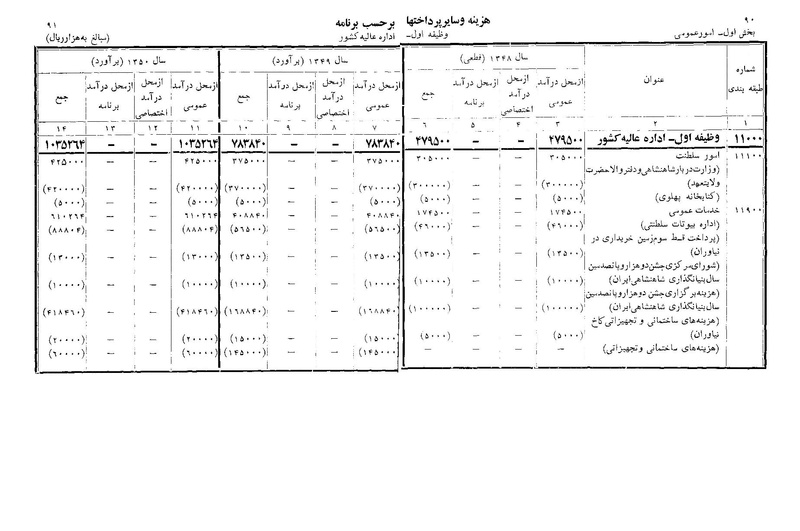 ۹۰
هزینه وسایرپرداختها برحسب برنامه
۹۱
بخش اول- امورعمومی
وظیفه اول- اداره عالیه کشور
(مبالغ به هزارریال)
شماره طبقه بندی | عنوان | سال ۱۳۴۸ (قطعی) | سال ۱۳۴۹ (برآورد) | سال ۱۳۵۰ (برآورد)
ازمحل درآمد عمومی | ازمحل درآمد اختصاصی | ازمحل درآمد برنامه | جمع | ازمحل درآمد عمومی | ازمحل درآمد اختصاصی | ازمحل درآمد برنامه | جمع | ازمحل درآمد عمومی | ازمحل درآمد اختصاصی | ازمحل درآمد برنامه | جمع
۱ | ۲ | ۳ | ۴ | ۵ | ۶ | ۷ | ۸ | ۹ | ۱۰ | ۱۱ | ۱۲ | ۱۳ | ۱۴
۱۱۰۰۰ | وظیفه اول- اداره عالیه کشور | ۴۷۹۵۰۰ | – | – | ۴۷۹۵۰۰ | ۷۸۳۸۴۰ | – | – | ۷۸۳۸۴۰ | ۱۰۳۵۲۶۴ | – | – | ۱۰۳۵۲۶۴
۱۱۱۰۰ | امور سلطنت | ۳۰۵۰۰۰ | – | – | ۳۰۵۰۰۰ | ۳۷۵۰۰۰ | – | – | ۳۷۵۰۰۰ | ۴۲۵۰۰۰ | – | – | ۴۲۵۰۰۰
(وزارت دربارشاهنشاهی ودفتروالاحضرت
ولایتعهد) | (۳۰۰۰۰۰) | – | – | (۳۰۰۰۰۰) | (۳۷۰۰۰۰) | – | – | (۳۷۰۰۰۰) | (۴۲۰۰۰۰) | – | – | (۴۲۰۰۰۰)
(کتابخانه پهلوی) | (۵۰۰۰) | – | – | (۵۰۰۰) | (۵۰۰۰) | – | – | (۵۰۰۰) | (۵۰۰۰) | – | – | (۵۰۰۰)
۱۱۹۰۰ | خدمات عمومی | ۱۷۴۵۰۰ | – | – | ۱۷۴۵۰۰ | ۴۰۸۸۴۰ | – | – | ۴۰۸۸۴۰ | ۶۱۰۲۶۴ | – | – | ۶۱۰۲۶۴
(اداره بیوتات سلطنتی) | (۴۶۰۰۰) | – | – | (۴۶۰۰۰) | (۵۶۵۰۰) | – | – | (۵۶۵۰۰) | (۸۸۸۰۴) | – | – | (۸۸۸۰۴)
(پرداخت قسط سوم زمین خریداری در
نیاوران) | (۱۳۵۰۰) | – | – | (۱۳۵۰۰) | (۱۳۵۰۰) | – | – | (۱۳۵۰۰) | (۱۳۰۰۰) | – | – | (۱۳۰۰۰)
(شورای مرکزی جشن دوهزاروپانصدمین
سال بنیانگذاری شاهنشاهی ایران) | (۱۰۰۰۰) | – | – | (۱۰۰۰۰) | (۱۰۰۰۰) | – | – | (۱۰۰۰۰) | (۱۰۰۰۰) | – | – | (۱۰۰۰۰)
(هزینه برگزاری جشن دوهزاروپانصدمین
سال بنیانگذاری شاهنشاهی ایران) | (۱۰۰۰۰۰) | – | – | (۱۰۰۰۰۰) | (۱۶۸۸۴۰) | – | – | (۱۶۸۸۴۰) | (۴۱۸۴۶۰) | – | – | (۴۱۸۴۶۰)
(هزینه های ساختمانی و تجهیزاتی کاخ
نیاوران) | (۵۰۰۰) | – | – | (۵۰۰۰) | (۱۵۰۰۰) | – | – | (۱۵۰۰۰) | (۲۰۰۰۰) | – | – | (۲۰۰۰۰)
(هزینه های ساختمانی وتجهیزاتی) | – | – | – | – | (۱۴۵۰۰۰) | – | – | (۱۴۵۰۰۰) | (۶۰۰۰۰) | – | – | (۶۰۰۰۰)